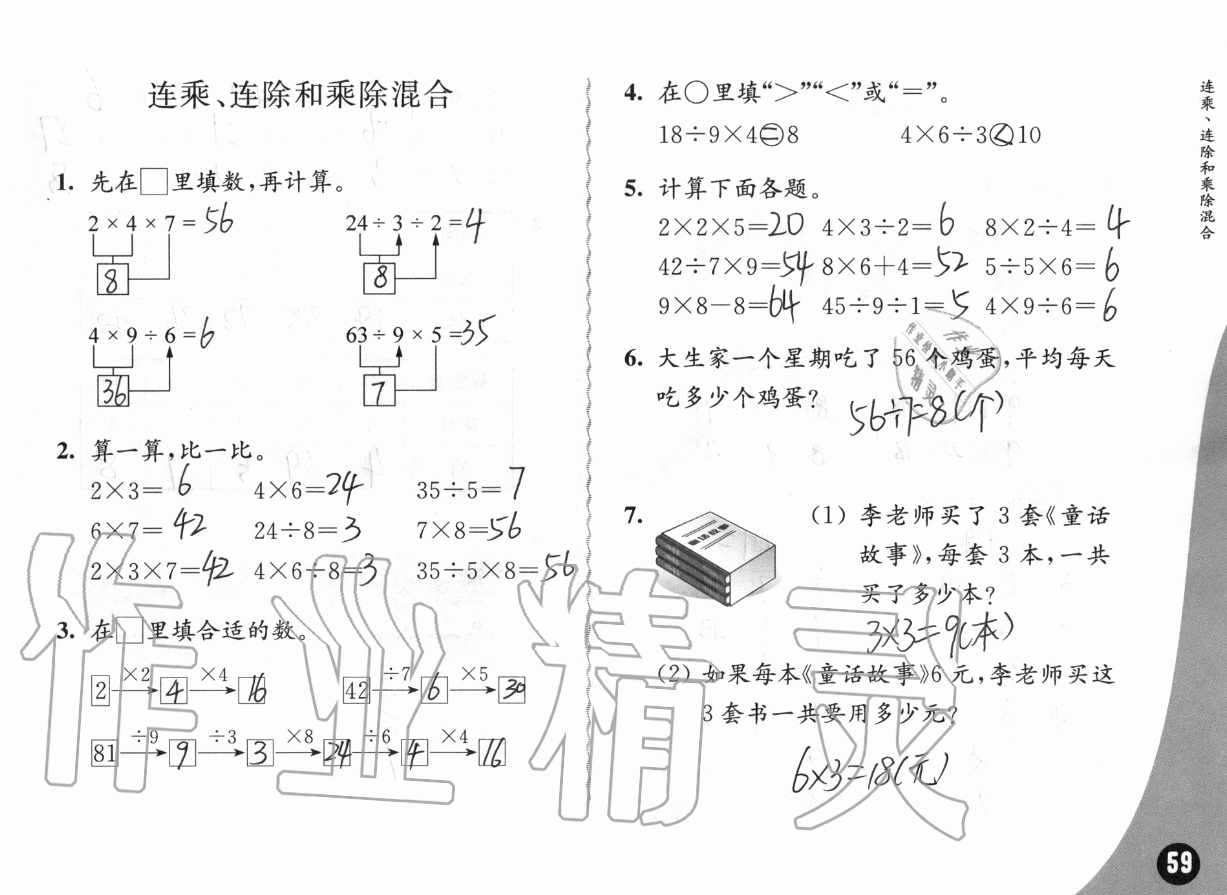 连乘、连除和乘除混合
1. 先在□里填数,再计算。
2 × 4 × 7 = 56
8
24 ÷ 3 ÷ 2 = 4
8
4 × 9 ÷ 6 = 6
36
63 ÷ 9 × 5 = 35
7
2. 算一算,比一比。
2×3= 6 4×6=24 35÷5= 7
6×7= 42 24÷8=3 7×8=56
2×3×7=42 4×6÷8=3 35÷5×8=56
3. 在□里填合适的数。
2 ×2 4 ×4 16
42 ÷7 6 ×5 30
81 ÷9 9 ÷3 3 ×8 24 ÷6 4 ×4 16
4. 在○里填“>”“<”或“=”。
18÷9×4=8 4×6÷3<10
5. 计算下面各题。
2×2×5=20 4×3÷2=6 8×2÷4=4
42÷7×9=54 8×6+4=52 5÷5×6=6
9×8-8=64 45÷9÷1=5 4×9÷6=6
6. 大生家一个星期吃了 56 个鸡蛋,平均每天
吃多少个鸡蛋?
56÷7=8(个)
7. (1) 李老师买了 3 套《童话
故事》,每套 3 本,一共
买了多少本?
3×3=9(本)
(2) 如果每本《童话故事》6 元,李老师买这
3 套书一共要用多少元?
6×3=18(元)
连乘、连除和乘除混合
59
作业精灵